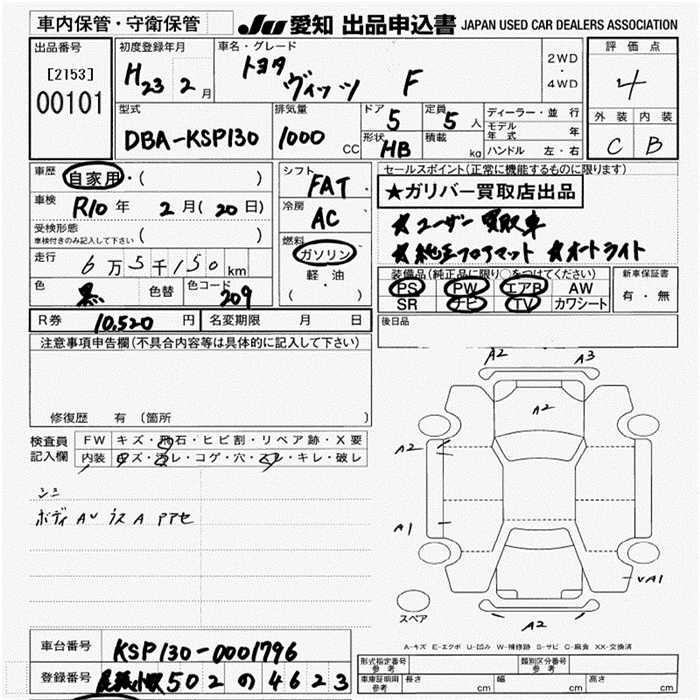 車内保管・守衛保管
JU 愛知 出品申込書 JAPAN USED CAR DEALERS ASSOCIATION
出品番号
[2153]
00101
初度登録年月
H23 2月
車名・グレード
トヨタ ヴィッツ F
2WD
・
4WD
評価点
4
外装 内装
C B
型式
DBA-KSP130
排気量
1000 CC
ドア 5
定員 5人
形状 HB
積載 kg
ディーラー・並行
モデル年式 年
ハンドル 左・右
車歴 自家用・( )
車検 R10年 2月(20日)
受検形態
車検付きのみ記入して下さい ( )
走行 6万5千150km
色 黒 色替 色コード 209
シフト
FAT
冷房
AC
燃料
ガソリン
軽・油
( )
セールスポイント(正常に機能するものに限ります)
★ガリバー買取店出品
★ユーザー買取車
★純正フロアマット ★オートライト
装備品(純正品に限り○をつけてください)
PS PW エアB AW
SR ナビ TV カワシート
新車保証書
有・無
R券 10,520円 名変期限 月 日
後日品
注意事項申告欄(不具合内容等は具体的に記入して下さい)
修復歴 有 (箇所
検査員
記入欄
FW キズ・飛石・ヒビ割・リペア跡・X要
内装 キズ・汚レ・コゲ・穴・スレ・キレ・破レ
シミ
ボディ AU ラス A アアセ
A2 A3
A2
A2
A1
A2
VA1
スペア
A-キズ E-エクボ U-凹み W-補修跡 S-サビ C-腐食 XX-交換済
車台番号 KSP130-0001796
登録番号 尾張小牧 502 の 4623
形式指定番号
参考
類別区分番号
参考
車庫証明用
参考
長さ cm 幅 cm 高さ cm